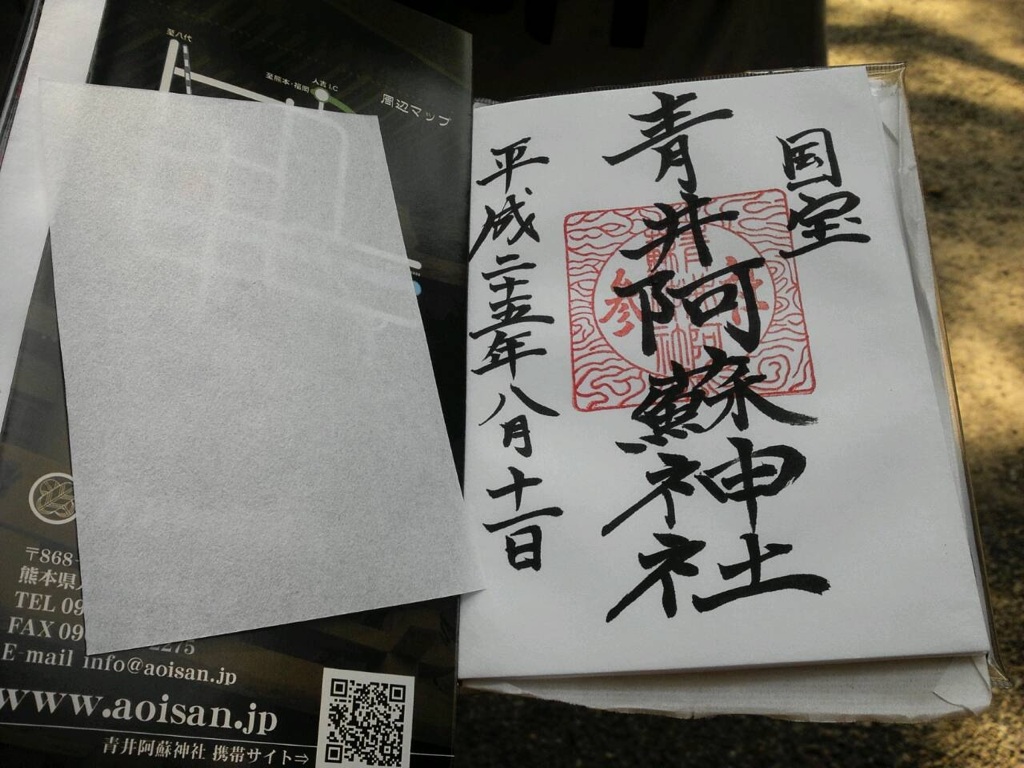 至八代
至熊本・福岡
人吉 I.C
周辺マップ
国宝
青井阿蘇神社
参
平成二十五年八月十一日
〒868-
熊本県
TEL 09
FAX 09
2275
E-mail info@aoisan.jp
www.aoisan.jp
青井阿蘇神社 携帯サイト⇒